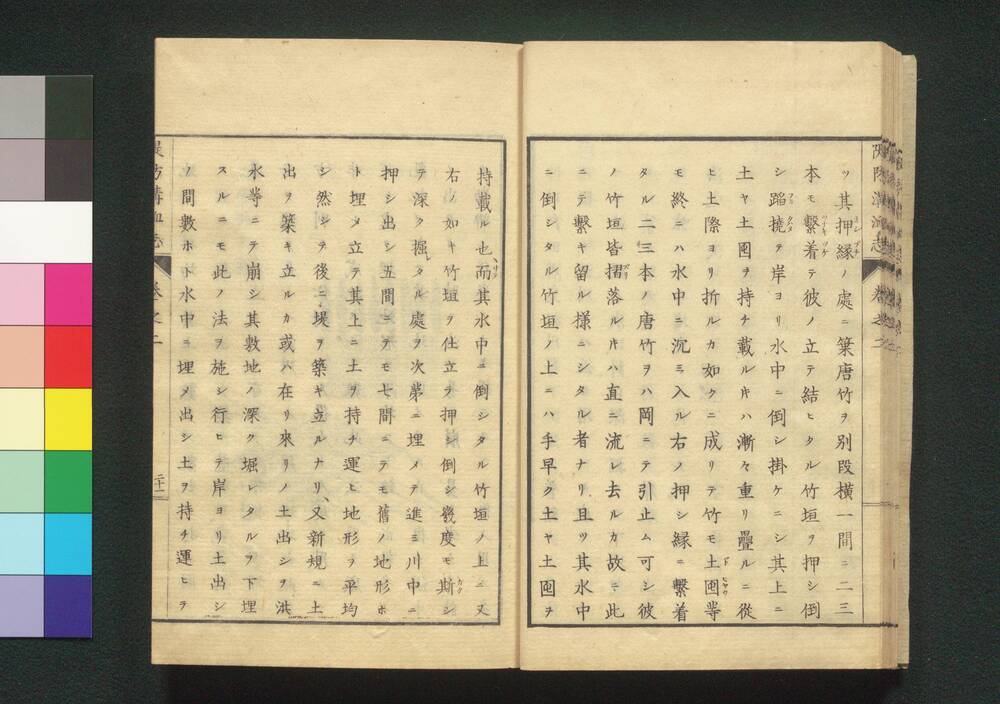 ツ其押縁ノ處ニ篥唐竹ヲ別段横一間ニ二三
本モ繋着テ彼ノ立テ結ヒタル竹垣ヲ押シ倒
シ蹈撓テ岸ヨリ水中ニ倒シ掛ケニシ其上ニ
土ヤ土囤ヲ持チ載ル片ハ漸々重リ疊ルニ從
ヒ土際ヨリ折ルカ如クニ成リテ竹モ土囤等
モ終ニハ水中ニ沉ミ入ル右ノ押シ縁ニ繋着
タル二三本ノ唐竹ヲハ岡ニテ引止ム可シ彼
ノ竹垣皆摺落ル片ハ直ニ流レ去ルカ故ニ此
ニテ繋キ留ル様ニシタル者ナリ且ツ其水中
ニ倒シタル竹垣ノ上ニハ手早ク土ヤ土囤ヲ
持載ル也而其水中ニ倒シタル竹垣ノ上ニ又
右ノ如キ竹垣ヲ仕立テ押シ倒シ幾度モ斯シ
テ深ク掘タル處ヲ次第ニ埋メテ進ミ川中ニ
押シ出シ五間ニテモ七間ニテモ舊ノ地形ホ
ト埋メ立テ其上ニ土ヲ持チ運ヒ地形ヲ平均
シ然シテ後ニ堤ヲ築キ立ルナリ又新規ニ土
出ヲ築キ立ルカ或ハ在リ來リノ土出シヲ洪
水等ニテ崩シ其敷地ノ深ク堀レタルヲ下埋
スルニモ此ノ法ヲ施シ行ヒテ岸ヨリ土出シ
ノ間數ホト水中ニ埋メ出シ土ヲ持チ運ヒテ
卷之二
二十一